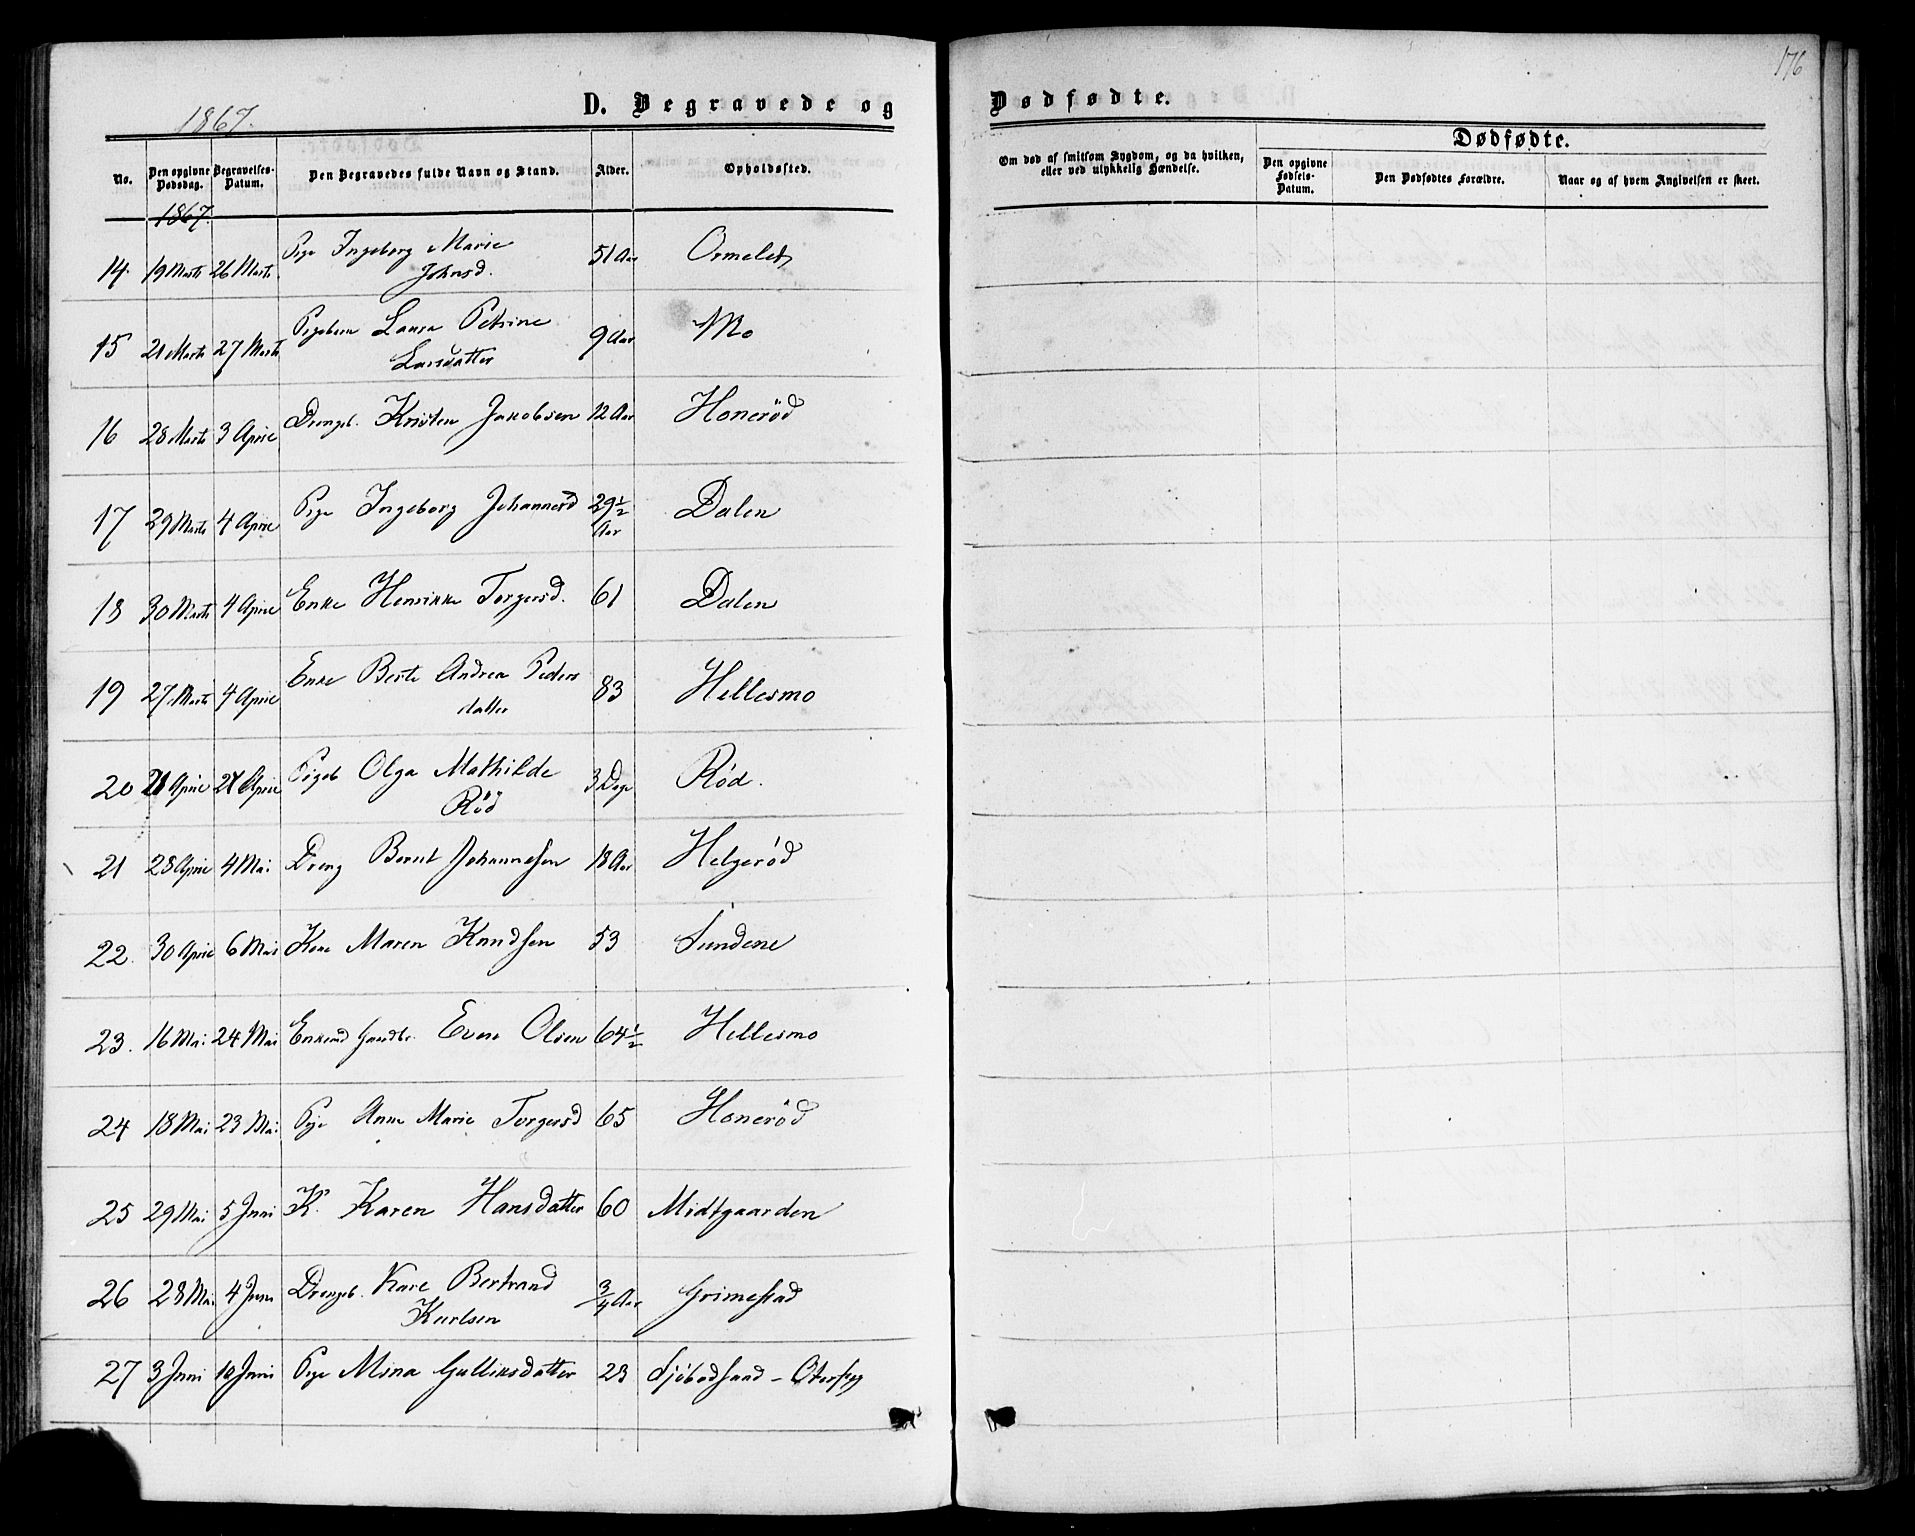 176
1867.
D. Begravede og Dødfødte.
No. Den opgivne Dødsdag. Begravelses-Datum. Den Begravedes fulde Navn og Stand. Alder. Opholdssted.
Om død af smitsom Sygdom, og da hvilken, eller ved ulykkelig Hændelse.
Dødfødte.
Den opgivne Fødsels-Datum. Den Dødfødtes Forældre. Naar og af hvem Angivelsen er skeet.
1867.
14. 19 Marts 26 Marts Pige Ingeborg Marie 51 Aar Ormelet
Johnsd.
15 21 Marts 27 Marts Pigebarn Laura Petrine 9 Aar Mo
Larsdatter
16 28 Marts 3 April Drengeb. Kristen Jakobsen 12 Aar Honeröd
17 29 Marts 4 April Pige Ingeborg Johannesd 29 1/2 Dalen
Aar
18 30 Marts 4 April Enke Henrikke Torgersd. 61 Dalen
19 27 Marts 4 April Enke Berte Andrea Peders 83 Hellesmo
datter
20 April April Pigeb Olga Mathilde 3 Dage Röd.
Röd
21 28 April 4 Mai Dreng Bernt Johannesen 18 Aar Helgeröd
22. 30 April 6 Mai Kone Maren Knudsen 53 Sundene
23. 16 Mai 24 Mai Enkemd Gaardbr. Even Olsen 64 1/2 Hellesmo
24 18 Mai 23 Mai Pige Anne Marie Torgersd 65 Honeröd
25 29 Mai 5 Juni K. Karen Hansdatter 60 Midtgaarden
26 28 Mai 4 Juni Drengeb. Karl Bertrand 3/4 Aar Grimestad
Karlsen
27 3 Juni 10 Juni Pige Mina Gulliksdatter 23